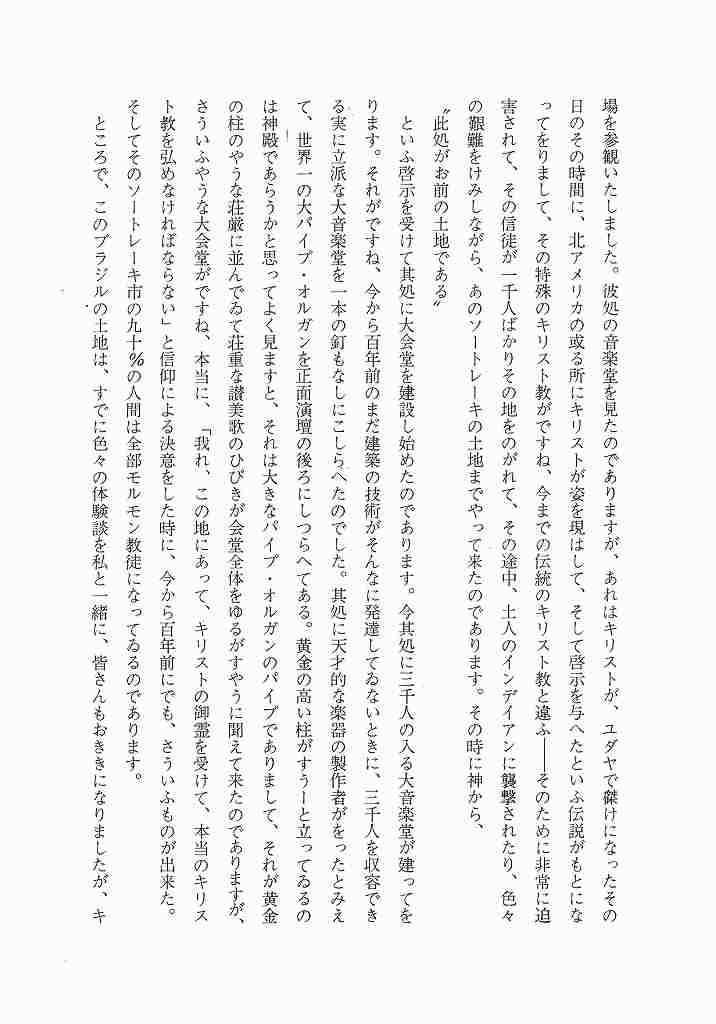 場を参観いたしました。彼処の音楽堂を見たのでありますが、あれはキリストが、ユダヤで磔けになったその
日のその時間に、北アメリカの或る所にキリストが姿を現はして、そして啓示を与へたといふ伝説がもとにな
ってをりまして、その特殊のキリスト教がですね、今までの伝統のキリスト教と違ふ――そのために非常に迫
害されて、その信徒が一千人ばかりその地をのがれて、その途中、土人のインデイアンに襲撃されたり、色々
の艱難をけみしながら、あのソートレーキの土地までやって来たのであります。その時に神から、
〝此処がお前の土地である〟
といふ啓示を受けて其処に大会堂を建設し始めたのであります。今其処に三千人の入る大音楽堂が建ってを
ります。それがですね、今から百年前のまだ建築の技術がそんなに発達してゐないときに、三千人を収容でき
る実に立派な大音楽堂を一本の釘もなしにこしらへたのでした。其処に天才的な楽器の製作者がをったとみえ
て、世界一の大パイプ・オルガンを正面演壇の後ろにしつらへてある。黄金の高い柱がすうーと立ってゐるの
は神殿であらうかと思ってよく見ますと、それは大きなパイプ・オルガンのパイプでありまして、それが黄金
の柱のやうな荘厳に並んでゐて荘重な讃美歌のひびきが会堂全体をゆるがすやうに聞えて来たのでありますが、
さういふやうな大会堂がですね、本当に、「我れ、この地にあって、キリストの御霊を受けて、本当のキリス
ト教を弘めなければならない」と信仰による決意をした時に、今から百年前にでも、さういふものが出来た。
そしてそのソートレーキ市の九十%の人間は全部モルモン教徒になってゐるのであります。
ところで、このブラジルの土地は、すでに色々の体験談を私と一緒に、皆さんもおききになりましたが、キ